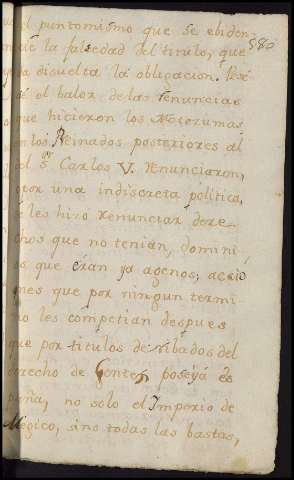 el punto mismo que se ebiden-
380
cie la falsedad del titulo, que
disuelta la obligacion.
sé el balor de las renuncias
que hicieron los Motezumas
en los Reinados posteriores al
del Sᵒʳ Carlos V. renunciaron,
por una indiscreta politica,
se les hizo renunciar dere-
chos que no tenian, domini,
os que eran ya agenos, accio
nes que por ningun termi-
no les competian despues
que por titulos deribados del
derecho de Gentes poseyá Es
paña, no solo el Imperio de
Megico, sino todas las bastas,